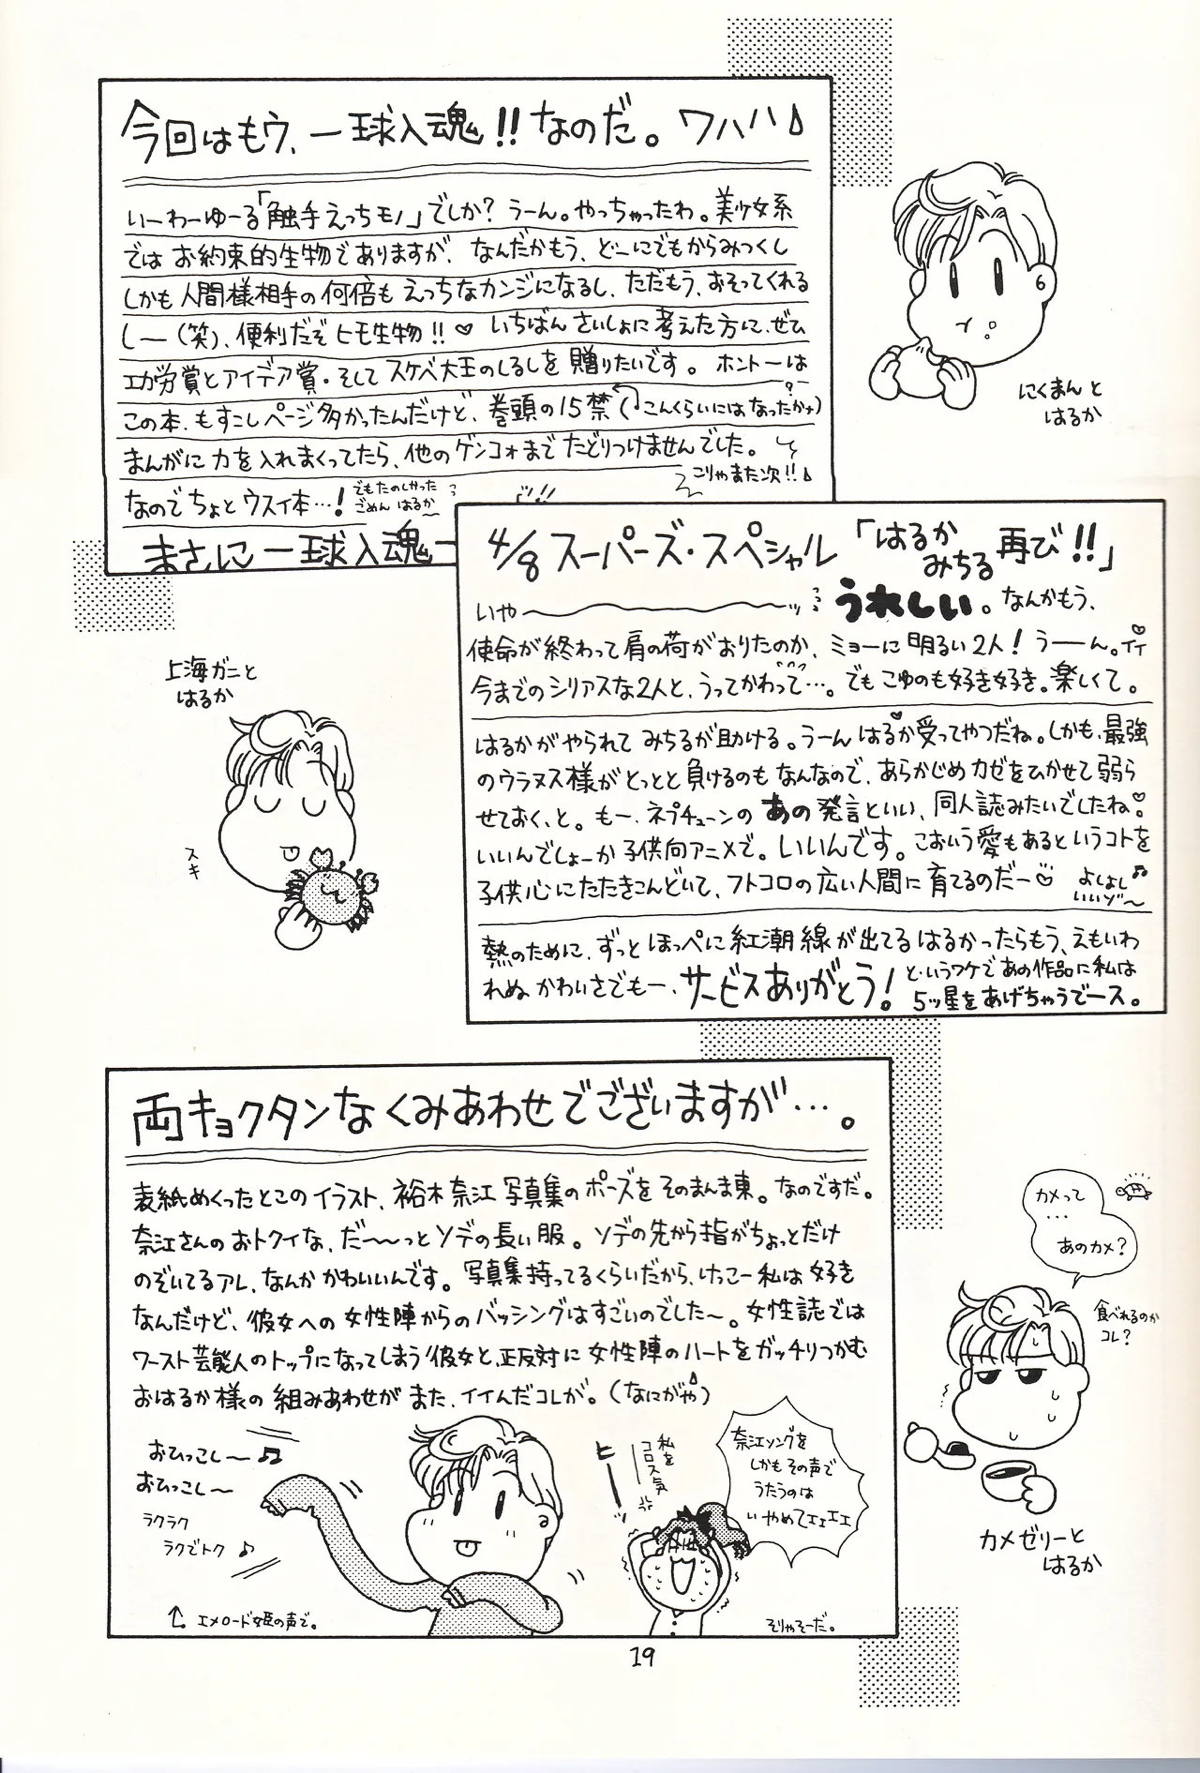 今回はもウ、一球入魂!!なのだ。ワハハ
いーわーゆーる「触手えっちモノ」でしか?うーん。やっちゃったわ。美少女系
ではお約束的生物でありますが、なんだかもう、どーにでもからみつくし
しかも人間様相手の何倍もえっちなカンジになるし、ただもう、おそってくれる
しー(笑)、便利だぞヒモ生物!!♥ いちばんさいしょに考えた方に、ぜひ
エガ労賞とアイデア賞・そしてスケベ大王のしるしを贈りたいです。ホントーは
この本、もすこしページ多かったんだけど、巻頭の15禁(こんくらいにはなったかナ?)
まんがに力を入れまくってたら、他のゲンコォまでたどりつけませんでした。
なのでちょとウスイ本…! でもたのしかった
ごめんはるか〜
こりゃまた次!!
まさに一球入魂ー
4/8スーパーズ・スペシャル「はるかみちる再び!!」
いや〜ッ うれしい。なんかもう、
使命が終わって肩の荷がおりたのか、ミョーに明るい2人!うーん。イイ♡
今までのシリアスな2人と、うってかわって…。でもこゆのも好き好き。楽しくて。
はるかがやられてみちるが助ける。うーんはるか受ってやつだね。しかも、最強
のウラヌス様がとっとと負けるのもなんなので、あらかじめカゼをひかせて弱ら
せておく、と。もー、ネプチューンのあの発言といい、同人誌みたいでしたね♡
いいんでしょーか子供向アニメで。いいんです。こおいう愛もあるというコトを
子供心にたたきこんどいて、フトコロの広い人間に育てるのだー♡ よしよし♪
いいゾ〜
熱のために、ずっとほっぺに紅潮線が出てるはるかったらもう、えもいわ
れぬかわいさでもー、サービスありがとう! というワケであの作品に私は
5ツ星をあげちゃうでース。
にくまんと
はるか
上海ガニと
はるか
スキ
両キョクタンなくみあわせでございますが…。
表紙めくったとこのイラスト、裕木奈江写真集のポーズをそのまんま東。なのですだ。
奈江さんのおトクイな、だ〜〜っとソデの長い服。ソデの先から指がちょっとだけ
のぞいてるアレ、なんかかわいいんです。写真集持ってるくらいだから、けっこー私は好き
なんだけど、彼女への女性陣からのバッシングはすごいのでした〜。女性誌では
ワースト芸能人のトップになってしまう彼女と、正反対に女性陣のハートをガッチリつかむ
おはるか様の組みあわせがまた、イイんだコレが。(なにがや)
おひっこし〜♫
おひっこし〜
ラクラク
ラクでトク♪
↑エメロード姫の声で。
ヒーー!
私を
コロス気
奈江ソングを
しかもその声で
うたうのは
いやめてエェエエ
そりゃそーだ。
カメって
…
あのカメ?
食べれるのか
コレ?
カメゼリーと
はるか
19